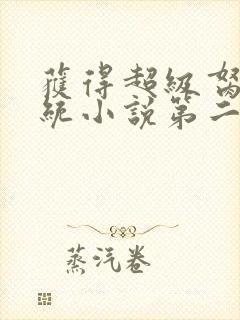 獲得超級
統小說第二
蒸汽卷